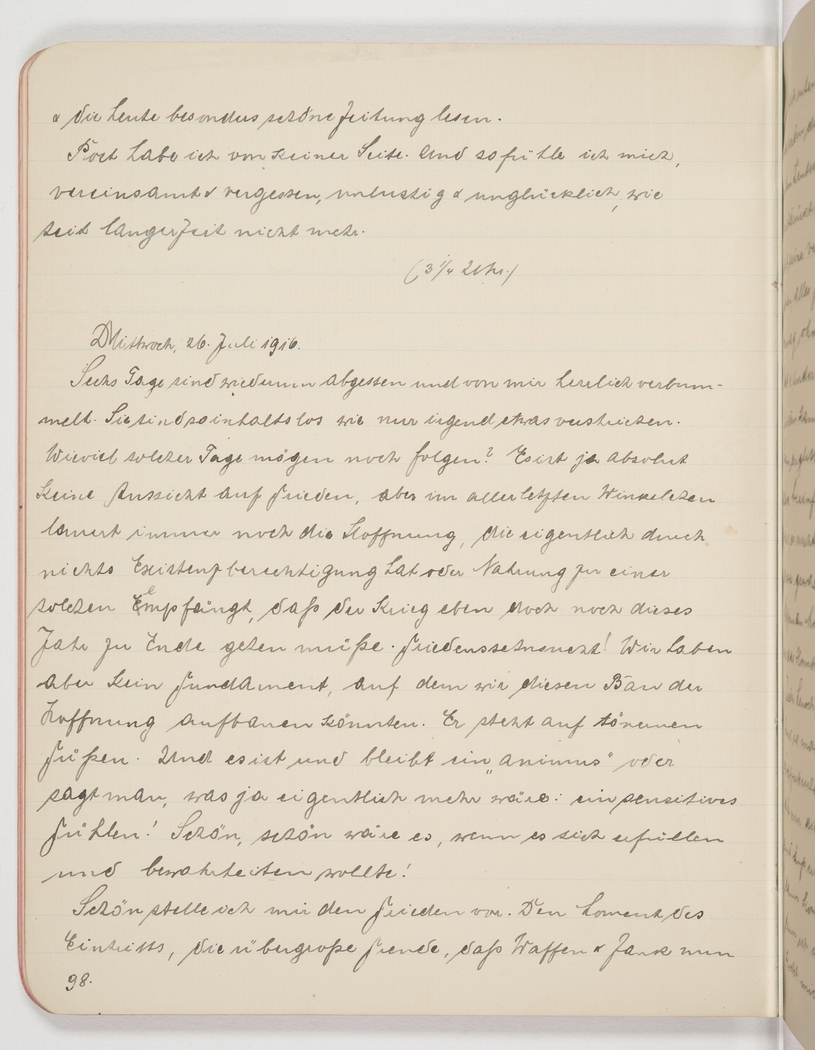 & die heute besonders schöne Zeitung lesen.
Post habe ich von keiner Seite. Und so fühle ich mich,
vereinsamt & vergessen, unlustig & unglücklich, wie
seit langer Zeit nicht mehr.
(3¼ Uhr.)
Mittwoch, 26. Juli 1916.
Sechs Tage sind wiederum abgessen und von mir herrlich verbum-
melt. Sie sind so inhaltslos wie nur irgend etwas verstrichen.
Wieviel solcher Tage mögen noch folgen? Es ist ja absolut
keine Aussicht auf Frieden, aber im allerletzten Winkelchen
lauert immer noch die Hoffnung, die eigentlich durch
nichts Existenzberechtigung hat oder Nahrung zu einer
solchen Empfängt, daß der Krieg eben doch noch dieses
Jahr zu Ende gehen müße. Friedenssehnsucht! Wir haben
aber kein Fundament, auf dem wir diesen Bau der
Hoffnung aufbauen könnten. Er steht auf tönernen
Füßen. Und es ist und bleibt ein „animus" oder
sagt man, was ja eigentlich mehr wäre: ein sensitives
Fühlen! Schön, schön wäre es, wenn es sich erfüllen
und bewahrheiten wollte!
Schön stelle ich mir den Frieden vor. Den Moment des
Eintritts, die übergroße Freude, daß Waffen & Zank nun
98.